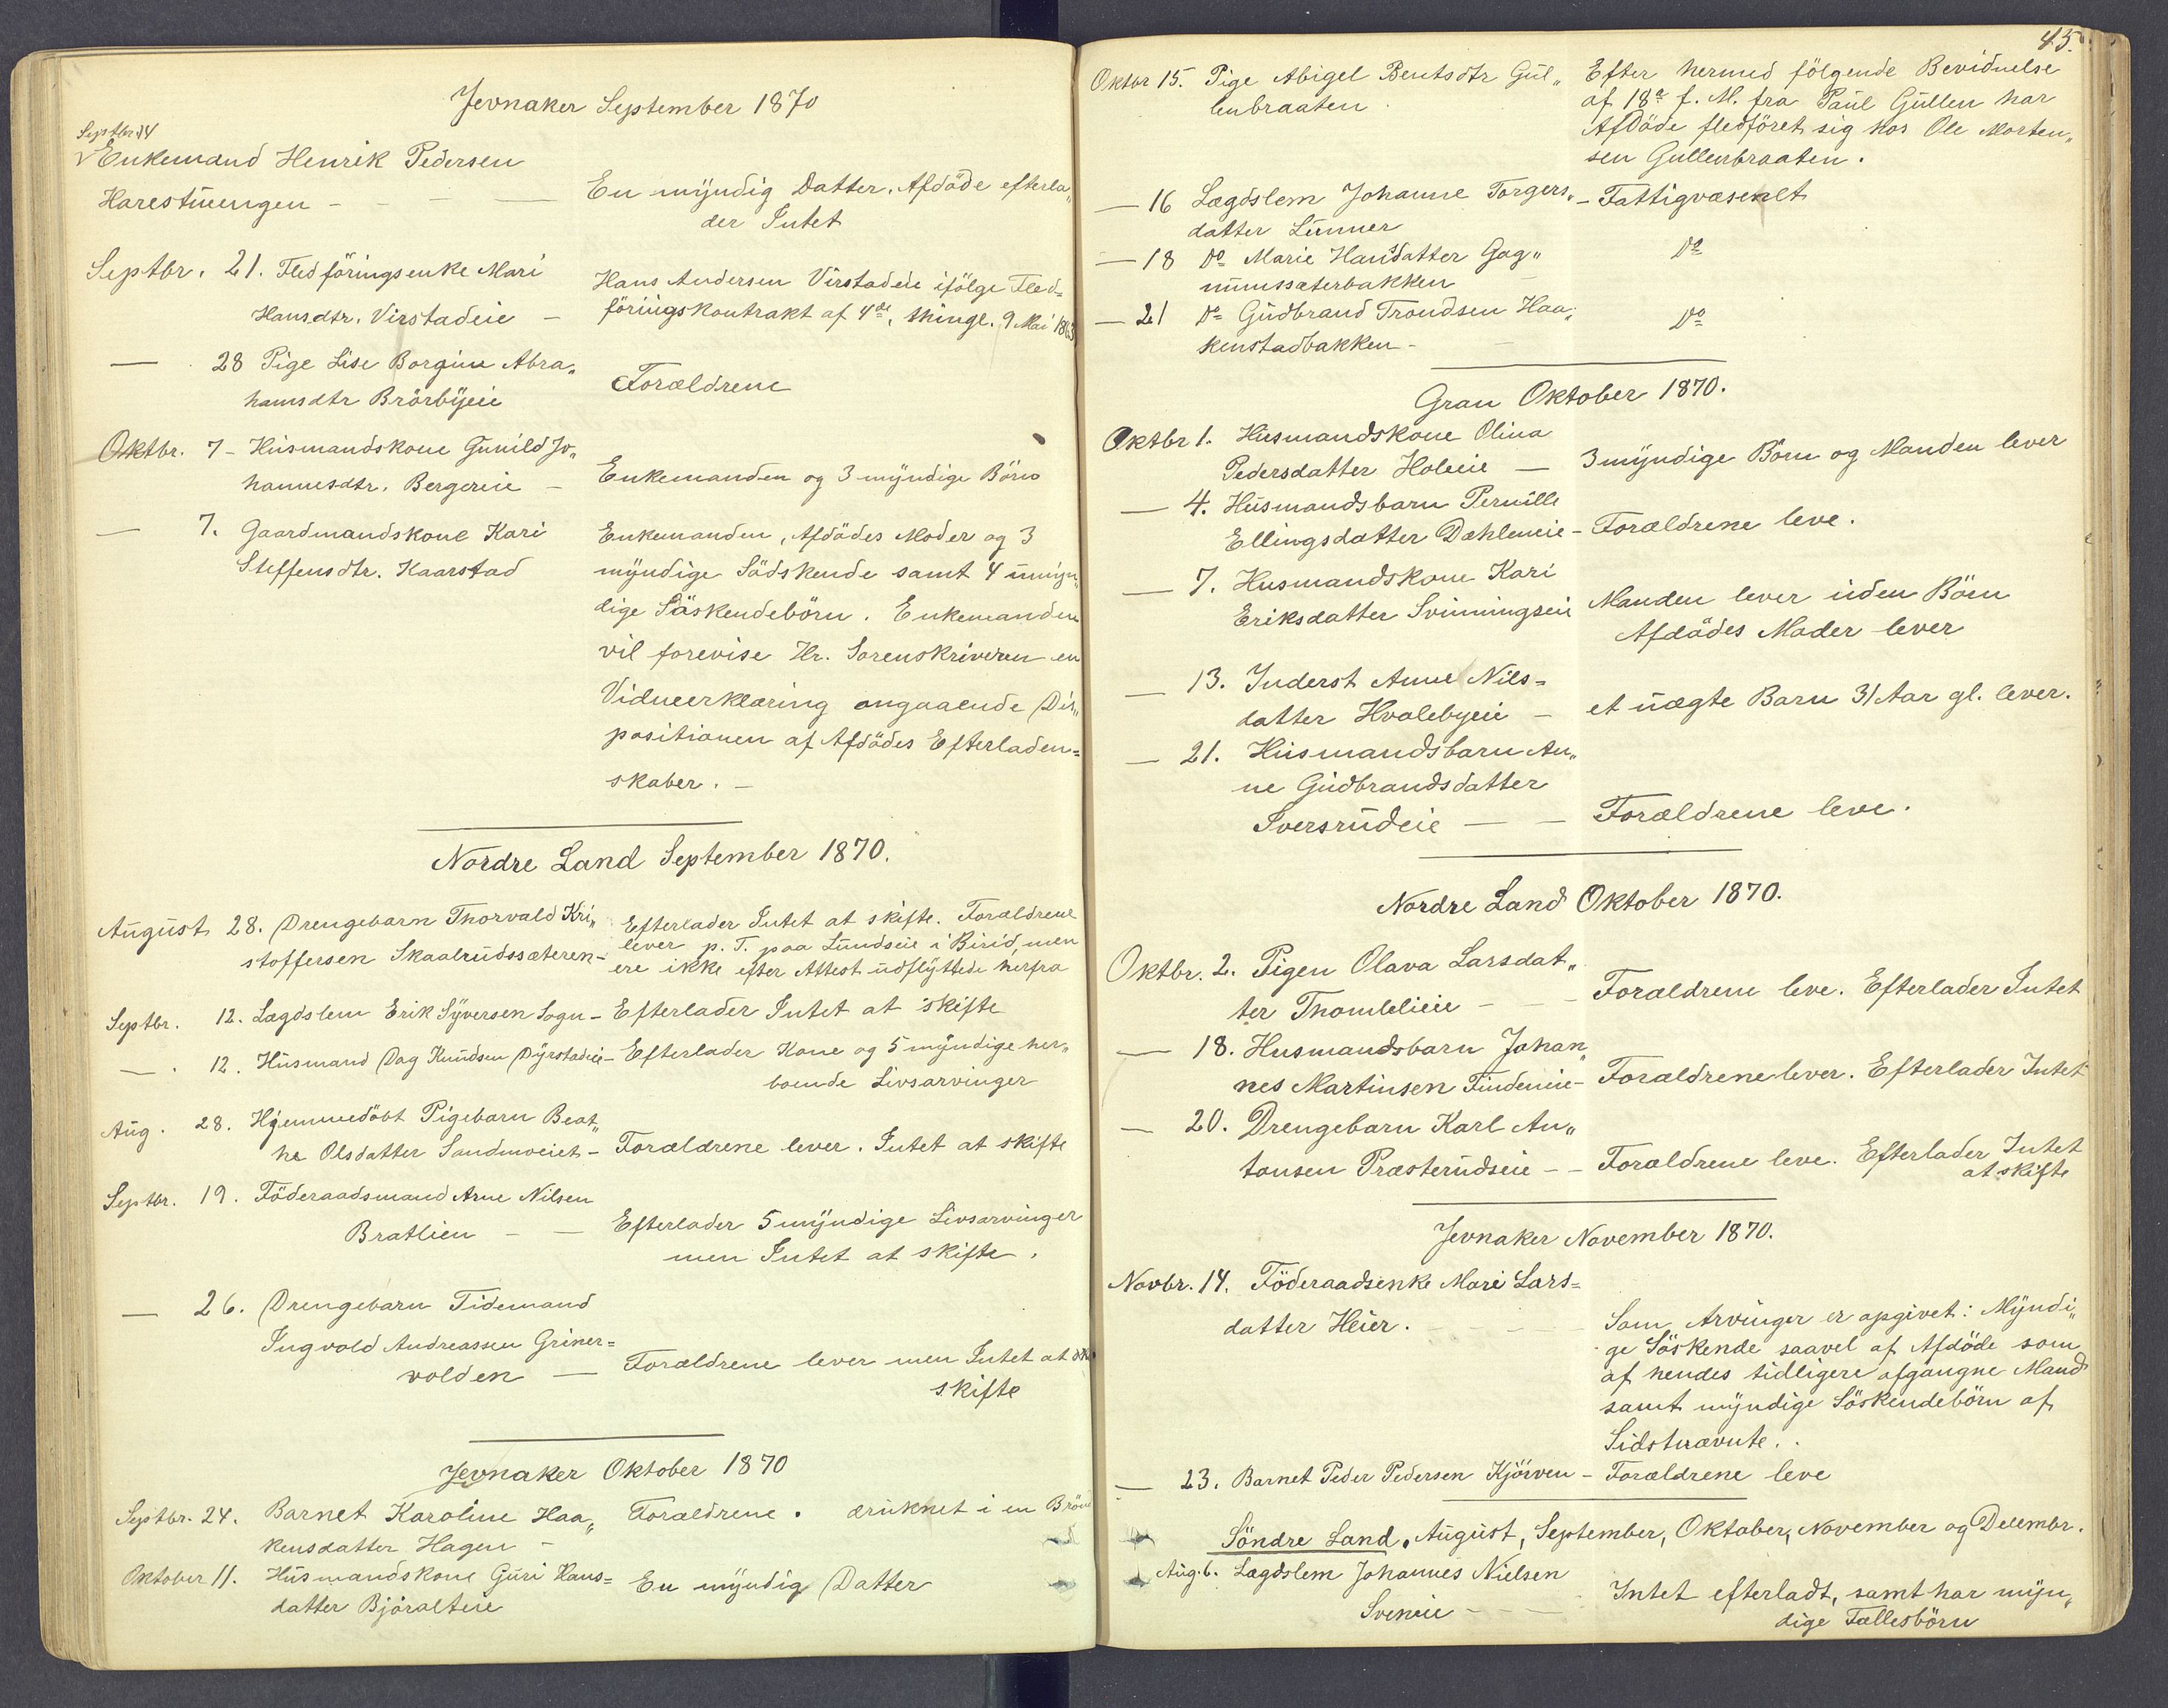 Jevnaker September 1870
Septbr 14
Enkemand Henrik Pedersen
Harestuengen - - - —
En myndig Datter. Afdöde efterla„
der Intet
Septbr. 21. Fledföringsenke Mari
Hansdtr. Virstadeie —
Hans Andersen Virstadeie ifölge Fled=
föringskontrakt af 4de, thingl. 9 Mai 1863
— 28 Pige Lise Borgine Abra„
hamsdtr Brörbyeie
Forældrene
Oktbr. 7 - Husmandskone Gunild Jo„
hannesdtr. Bergereie —
Enkemanden og 3 myndige Börn
— 7. Gaardmandskone Kari
Steffensdtr. Kaarstad
Enkemanden, Afdödes Moder og 3
myndige Södskende samt 4 umyn„
dige Söskendebörn. Enkemanden
vil forevise Hr. Sorenskriveren en
Vidneerklæring angaaende Dis„
positionen af Afdödes Efterladen=
skaber. —
Nordre Land September 1870.
August 28. Drengebarn Thorvald Kri„
stoffersen Skaalrudssæteren-
Efterlader Intet at skifte. Forældrene
lever p. T. paa Lundseie i Birid, men
ere ikke efter Attest udflyttede herfra
Septbr. 12. Lægdslem Erik Syversen Sogn - Efterlader Intet at skifte
— . 12. Husmand Dag Knudsen Dyrstadeie - Efterlader Kone og 5 myndige her„
boende Livsarvinger
Aug. 28. Hjemmedöbt Pigebarn Beat„
he Olsdatter Sandmoeiet - Forældrene lever. Intet at skifte
Septbr. 19. Föderaadsmand Arne Nilsen
Bratlien - —
Efterlader 5 myndige Livsarvinger
men Intet at skifte.
— 26. Drengebarn Tidemand
Ingvold Andreassen Griner=
volden —
Forældrene lever men Intet at
skifte
Jevnaker Oktober 1870
Septbr. 24. Barnet Karoline Haa„
kensdatter Hagen -
Forældrene. druknet i en Brön
Oktober 11. Husmandskone Guri Hans=
datter Björalteie
En myndig Datter
45.
Oktbr 15. Pige Abigel Bentsdtr Gul„
lenbraaten
Efter hermed fölgende Bevidnelse
af 18de f. M. fra Paul Gullen har
Afdöde fledföret sig hos Ole Morten„
sen Gullenbraaten.
— 16 Lægdslem Johanne Torgers„
datter Lunner
- Fattigvæsenet
— 18 Do Marie Hansdatter Gag„
numsæterbakken
Do
— 21 Do Gudbrand Trondsen Haa„
kenstadbakken - —
Do
Gran Oktober 1870.
Oktbr 1. Husmandskone Olina
Pedersdatter Holeie — 3 myndige Börn og Manden lever
— 4. Husmandsbarn Pernille
Ellingsdatter Dæhleneie - Forældrene leve.
— 7. Husmandskone Kari
Eriksdatter Svinningseie
Manden lever uden Börn
Afdödes Moder lever
— 13. Inderst Anne Nils=
datter Hvalebyeie - et uægte Barn 31 Aar gl. lever.
— 21. Husmandsbarn An„
ne Gudbrandsdatter
Iversrudeie — — Forældrene leve.
Nordre Land Oktober 1870.
Oktbr. 2. Pigen Olava Larsdat„
ter Thomlelieie - - - Forældrene leve. Efterlader Intet
— 18. Husmandsbarn Johan„
nes Martinsen Findeneie - Forældrene lever. Efterlader Intet
— 20. Drengebarn Karl An„
tonsen Præsterudseie - - Forældrene leve. Efterlader Intet
at skifte
Jevnaker November 1870.
Novbr. 14. Föderaadsenke Mari Lars=
datter Heier. - - - -
Som Arvinger er opgivet: Myndi„
ge Söskende saavel af Afdöde som
af hendes tidligere afgangne Mand
samt myndige Söskendebörn af
Sidstnævnte.
— 23. Barnet Peder Pedersen Kjörven - Forældrene leve
Söndre Land. August, September, Oktober, November og Decembr.
Aug. 6. Lægdslem Johannes Nielsen
Sveneie - - —
Intet efterladt, samt har myn„
dige Fællesbörn